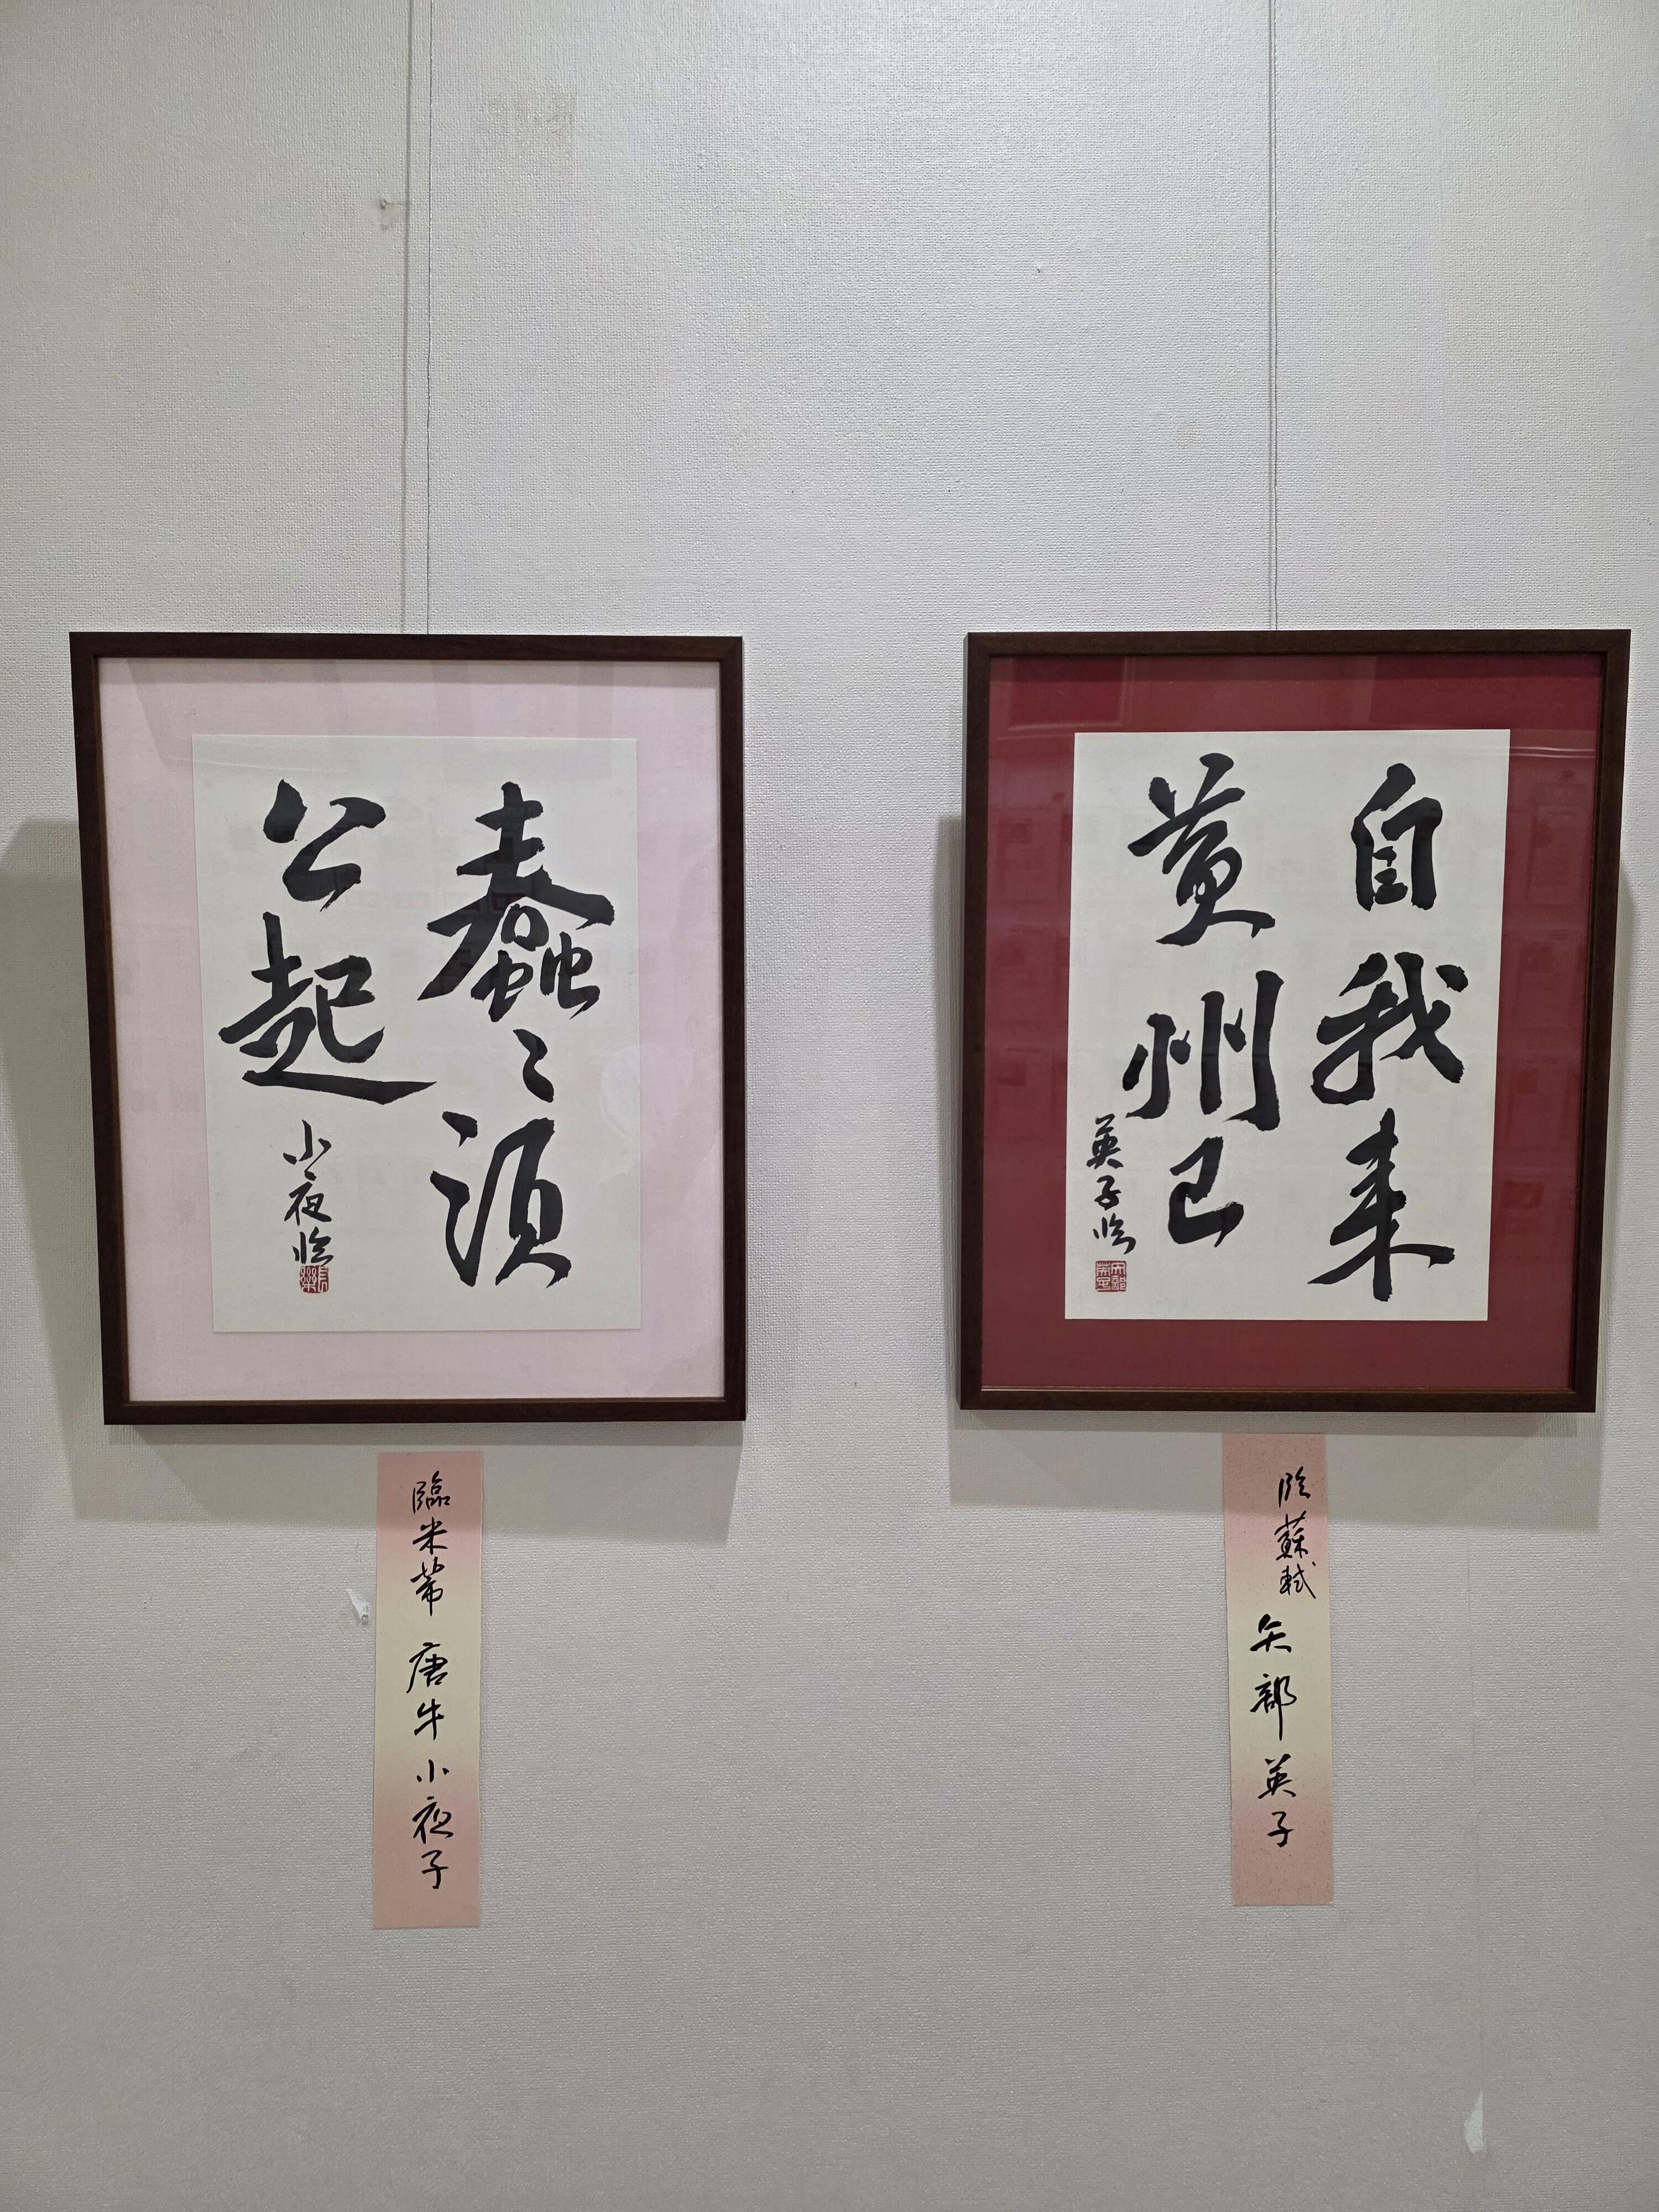 自我来
黄州已
英子臨
臨蘇軾 矢部英子
蠢〻須
公起
小夜臨
臨米芾 唐牛小夜子